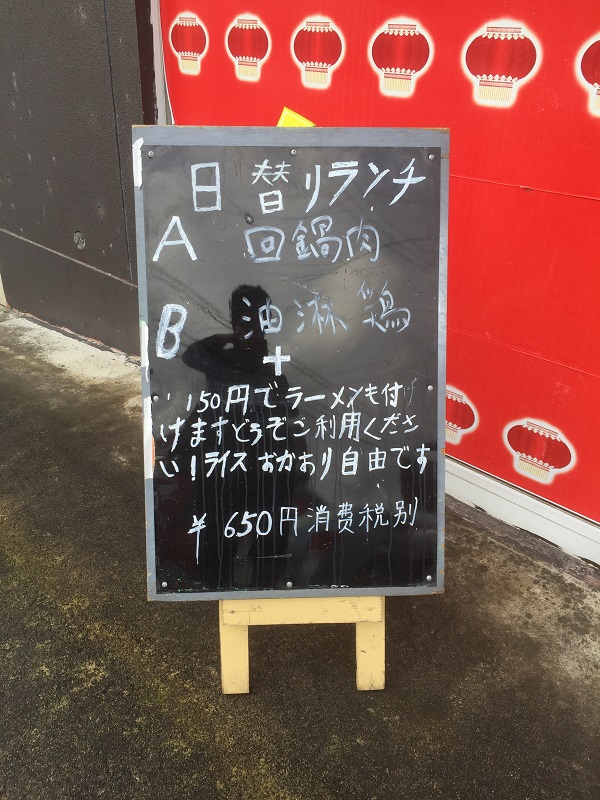 日替りランチ
A 回鍋肉
B 油淋鶏
+
150円でラーメンも付け
けますどうぞご利用くださ
い!ライスおかわり自由です
¥650円消費税別